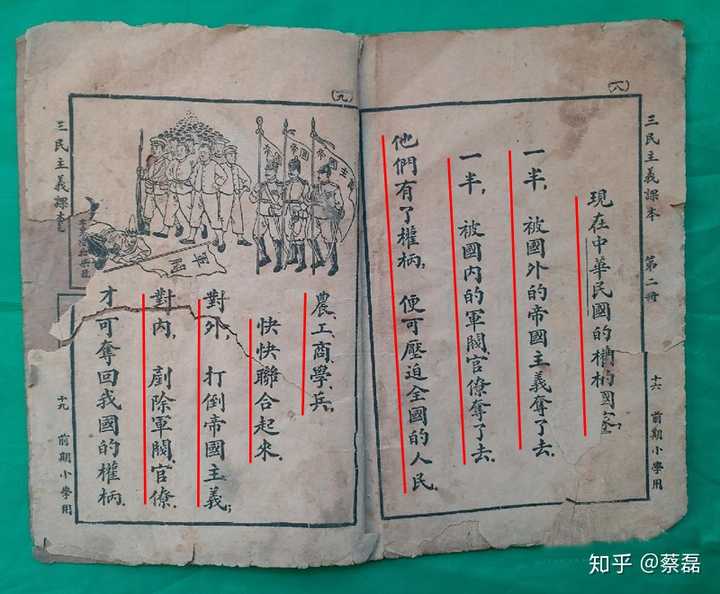 三民主義課本 第二冊
前期小學用
現在中華民國的權柄
一半,被國外的帝國主義奪了去.
一半,被國內的軍閥、官僚奪了去.
他們有了權柄,便可壓迫全國的人民.
帝國主義
軍閥
農、工、商、學、兵,
快快聯合起來.
對外,打倒帝國主義;
對內,剷除軍閥、官僚.
才可奪回我國的權柄.
三民主義課本
十九 前期小學用
知乎 @蔡磊